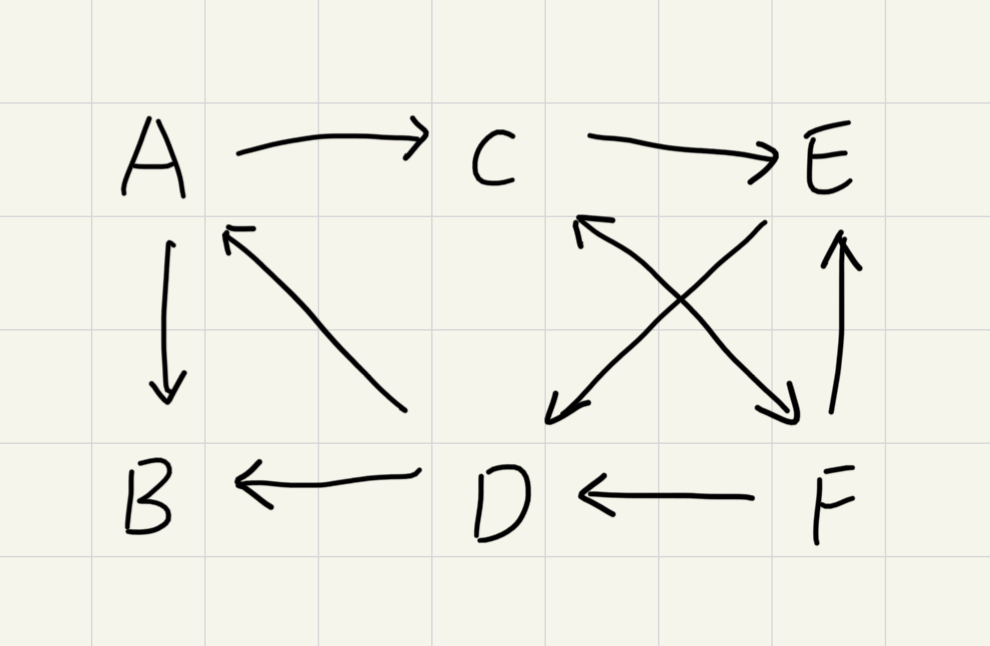 A C E
B D F